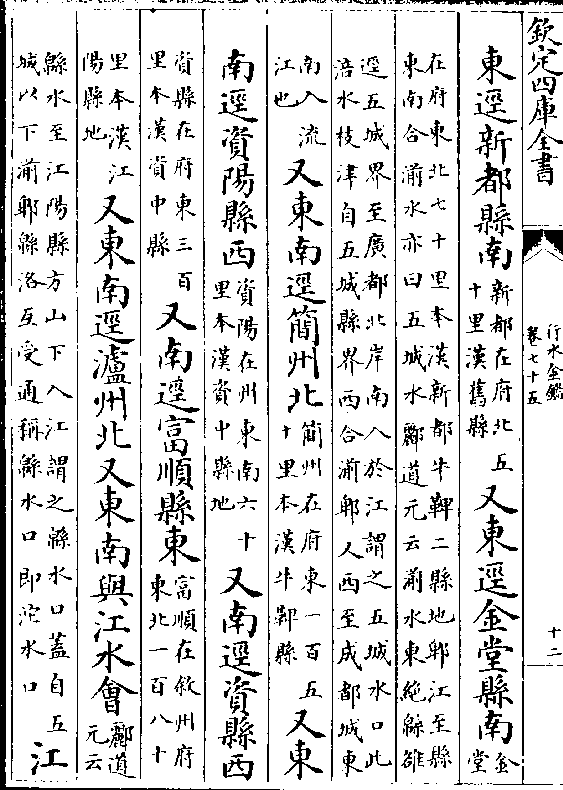 欽定四庫全書
行水金鑑
卷七十五
十二
東逕新都縣南新都在府北五十里漢舊縣又東逕金堂縣南金堂
在府東北七十里本漢新都牛鞞二縣地郫江至縣
東南合湔水亦曰五城水酈道元云湔水東絶緜雒
逕五城界至廣都北岸南入於江謂之五城水口此
涪水枝津自五城縣界西合湔郫又西至成都城東
南入流江也又東南逕簡州北簡州在府東一百五十里本漢牛鞞縣又東
南逕資陽縣西資陽在州東南六十里本漢資中縣地又南逕資縣西
資縣在府東三百里本漢資中縣又南逕富順縣東富順在敘州府東北一百八十
里本漢江陽縣地又東南逕瀘州北又東南與江水會酈道元云
緜水至江陽縣方山下入江謂之緜水口蓋自五
城以下湔郫緜洛互受通稱緜水口即沱水口江